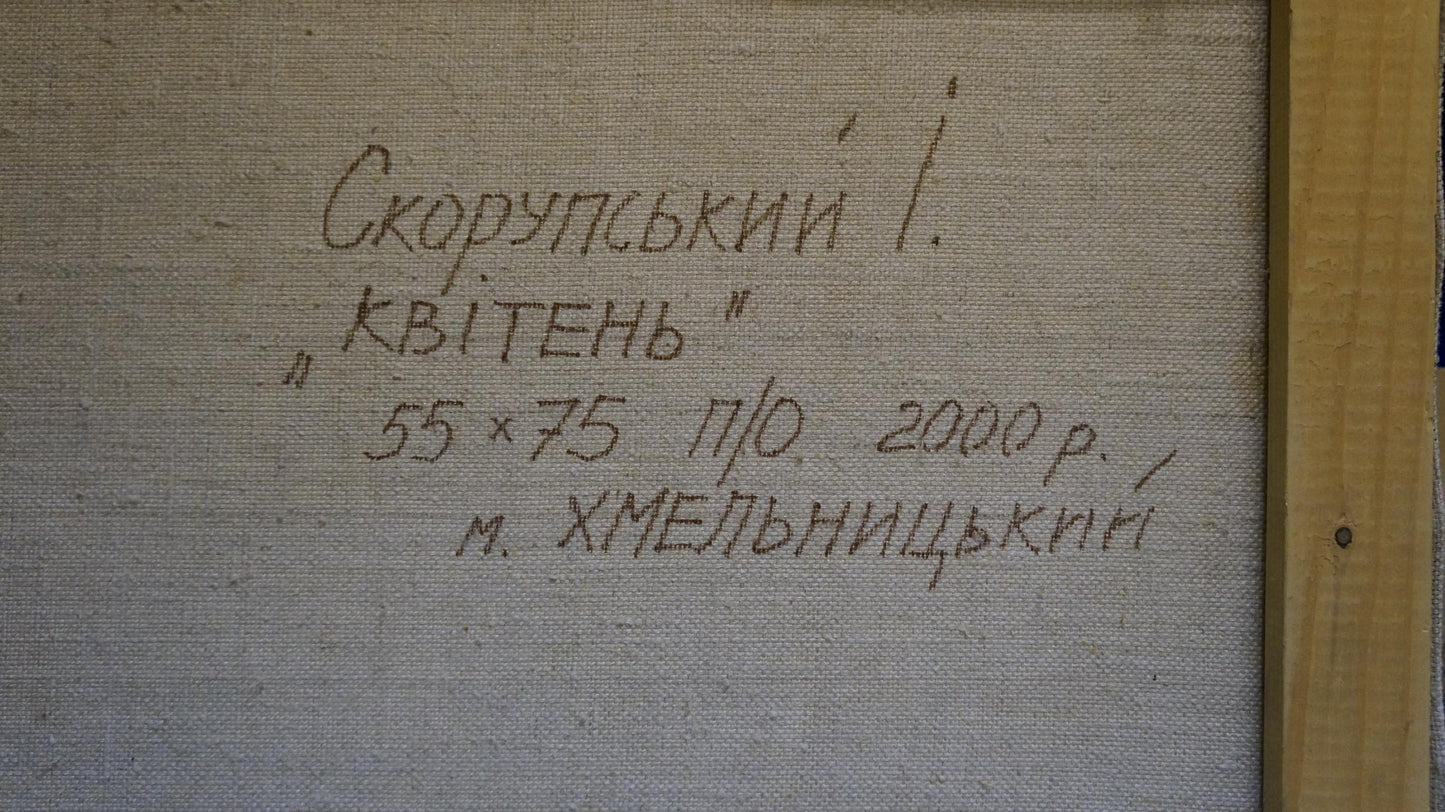 Скорупський І.
„КВІТЕНЬ"
55 х 75 П/О 2000 р.
м. ХМЕЛЬНИЦЬКИЙ